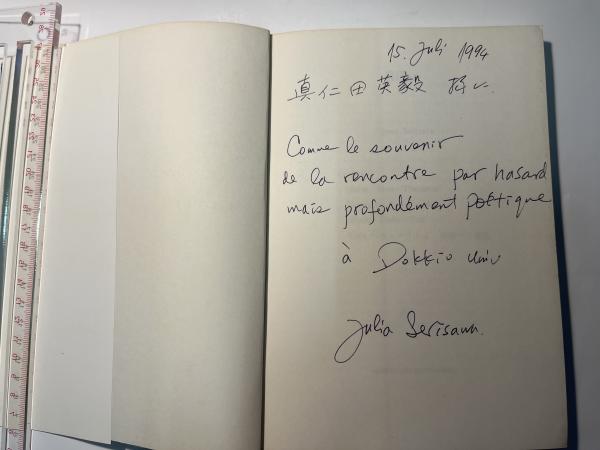 15. Juli 1994
真仁田英毅
Comme le souvenir
de la rencontre par hasard
mais profondément poétique
à Dokkio Univ
Julia